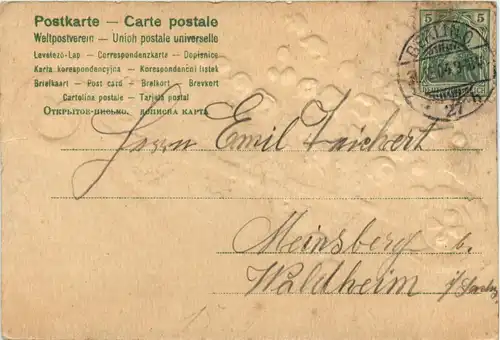 Postkarte — Carte postale
Weltpostverein — Union postale universelle
Levelező-Lap — Correspondenzkarte — Dopisnice
Karta korespondencyjna — Korespondenční lístek
Briefkaart — Post card — Brefkort — Brevkort
Cartolina postale — Tarjeta postal
ОТКРЫТОЕ-ПИСЬМО. ДОПИСНА КАРТА
5 5
BERLIN O
27
Herrn Emil Teichert
Meinsberg b.
Waldheim i/Sachs.